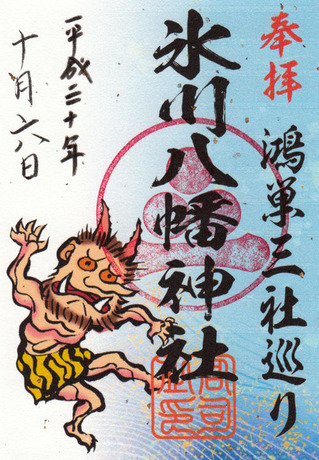 奉拝
鴻巣三社巡り
氷川八幡神社
平成二十年
十月六八日